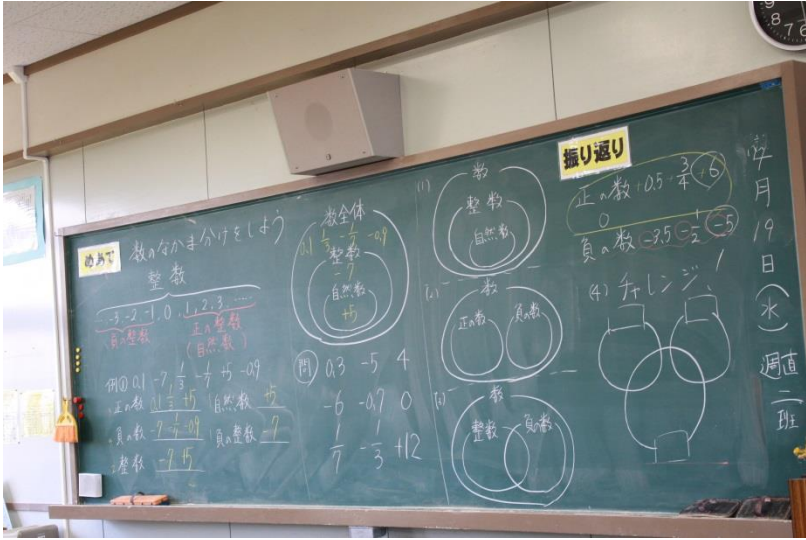 めあて
数のなかま分けをしよう
整数
-3, -2, -1, 0, 1, 2, 3, ……
負の整数
正の整数
(自然数)
0.1 -7, 1/3 -1/7 +5 -0.9
正の数 0.1 1/3 +5
自然数 +5
負の数 -7 -1/7 -0.9
負の整数 -7
整数 -7 +5
数全体
0.1 1/3 -1/7 -0.9
整数
-7
自然数
+5
問 0.3 -5 4
-6 -0.7 0
1/7 -1/3 +12
(1)
数
整数
自然数
(2)
数
正の数 負の数
(3)
数
整数 負の数
振り返り
正の数 +0.5 +3/4 +6
0
負の数 -3.5 -1/2 -5
(4) チャレンジ!
月
19
日
(水)
週直
二
班
9
8
7
6